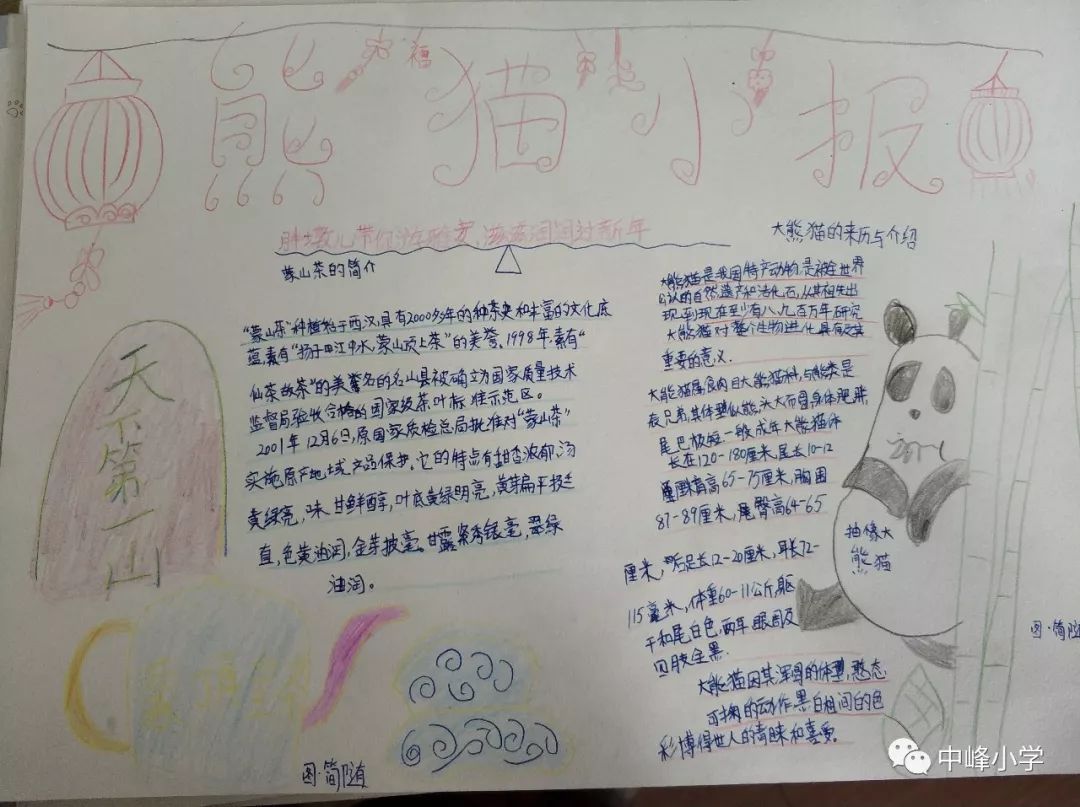 熊猫小报
福
胖墩儿带你游雅安,滋滋润润过新年
蒙山茶的简介
"蒙山茶"种植始于西汉,具有2000多年的种茶史和丰富的文化底
蕴,素有"扬子江中水,蒙山顶上茶"的美誉。1998年,素有"
仙茶故茶"的美誉名的名山县被确立为国家质量技术
监督局验收合格的国家级茶叶标准示范区。
2001年12月6日,原国家质检总局批准对"蒙山茶"
实施原产地域产品保护。它的特点有甜香浓郁,汤
黄绿亮,味甘鲜醇,叶底黄绿明亮,黄芽扁平挺
直,色黄油润,金芽披毫。甘露紧秀银毫,翠绿
油润。
大熊猫的来历与介绍
大熊猫是我国特产动物,是被全世界
公认的自然遗产和活化石,从其祖先出
现到现在至少有八、九百万年,研究
大熊猫对整个生物进化具有
重要的意义.
大熊猫属食肉目大熊猫科,与熊类是
表兄弟,其体型似熊,头大而圆,身体肥胖,
尾巴极短,一般成年大熊猫体
长在120-180厘米,尾长10-12
厘米,肩高65-75厘米,胸围
87-89厘米,臀高64-65
厘米,后足长12-20厘米,耳长72-
115毫米,体重60-11公斤,躯
干和尾白色,两耳眼周及
四肢全黑.
大熊猫因其浑圆的体型,憨态
可掬的动作,黑白相间的色
彩博得世人的青睐和喜爱.
天下第一山
抽像大
熊猫
图·简随
图·简随
中峰小学